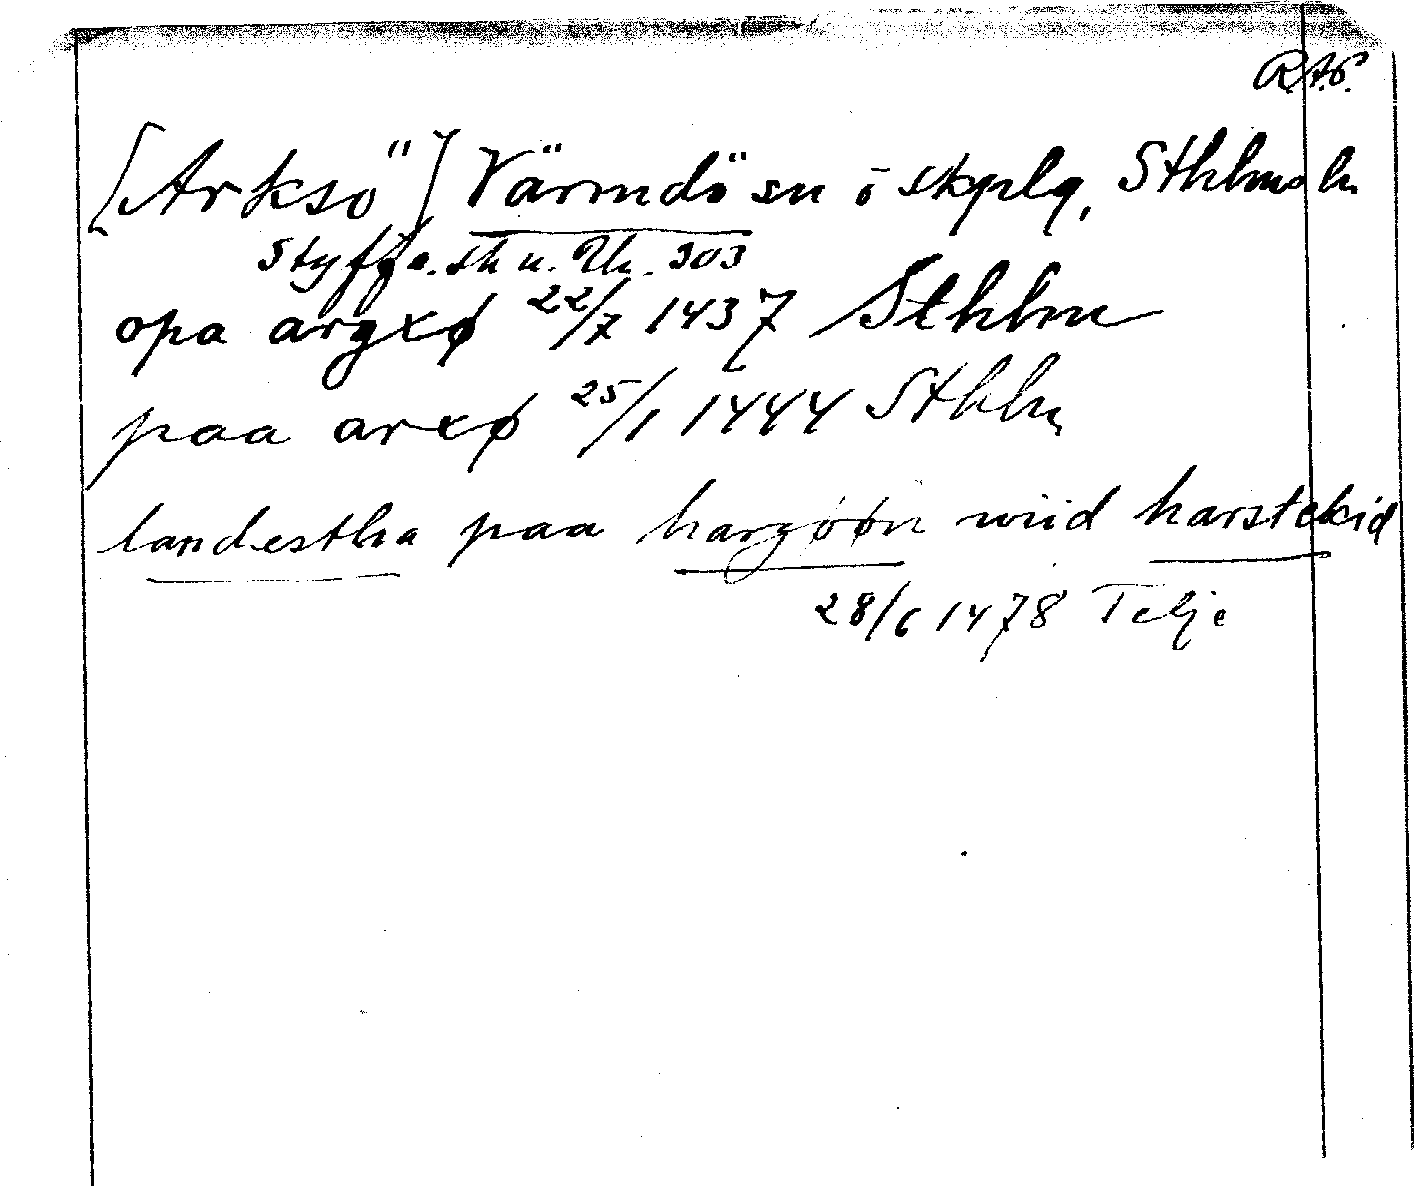 R.A.P.
[Arksö] Värmdö sn ö skplg, Sthlms ln
Styffe. Sk u. Un. 303
opa argxø 22/7 1437 Sthlm
paa arxø 25/1 1444 Sthlm
landestha paa hargøøn wiid harstekid
28/6 1478 Telje